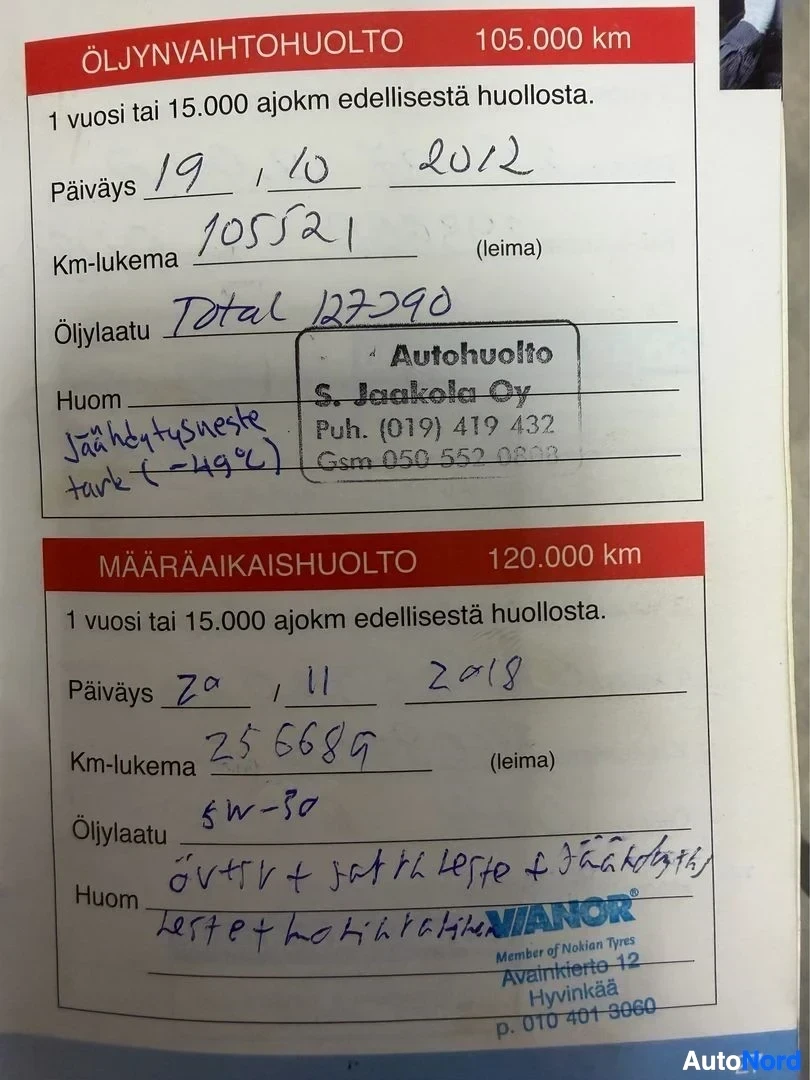 ÖLJYNVAIHTOHUOLTO 105.000 km
1 vuosi tai 15.000 ajokm edellisestä huollosta.
Päiväys 19 , 10 2012
Km-lukema 105521 (leima)
Öljylaatu Total
Autohuolto
Huom S. Jaakola Oy
Jäähdytysneste Puh. (019) 419 432
tark (-49°C) Gsm 050 552
MÄÄRÄAIKAISHUOLTO 120.000 km
1 vuosi tai 15.000 ajokm edellisestä huollosta.
Päiväys 20 , 11 2018
Km-lukema 256689 (leima)
Öljylaatu 5W-30
Huom + +
neste +
VIANOR®
Member of Nokian Tyres
Avainkierto 12
Hyvinkää
p. 010 401 3060
AutoNord